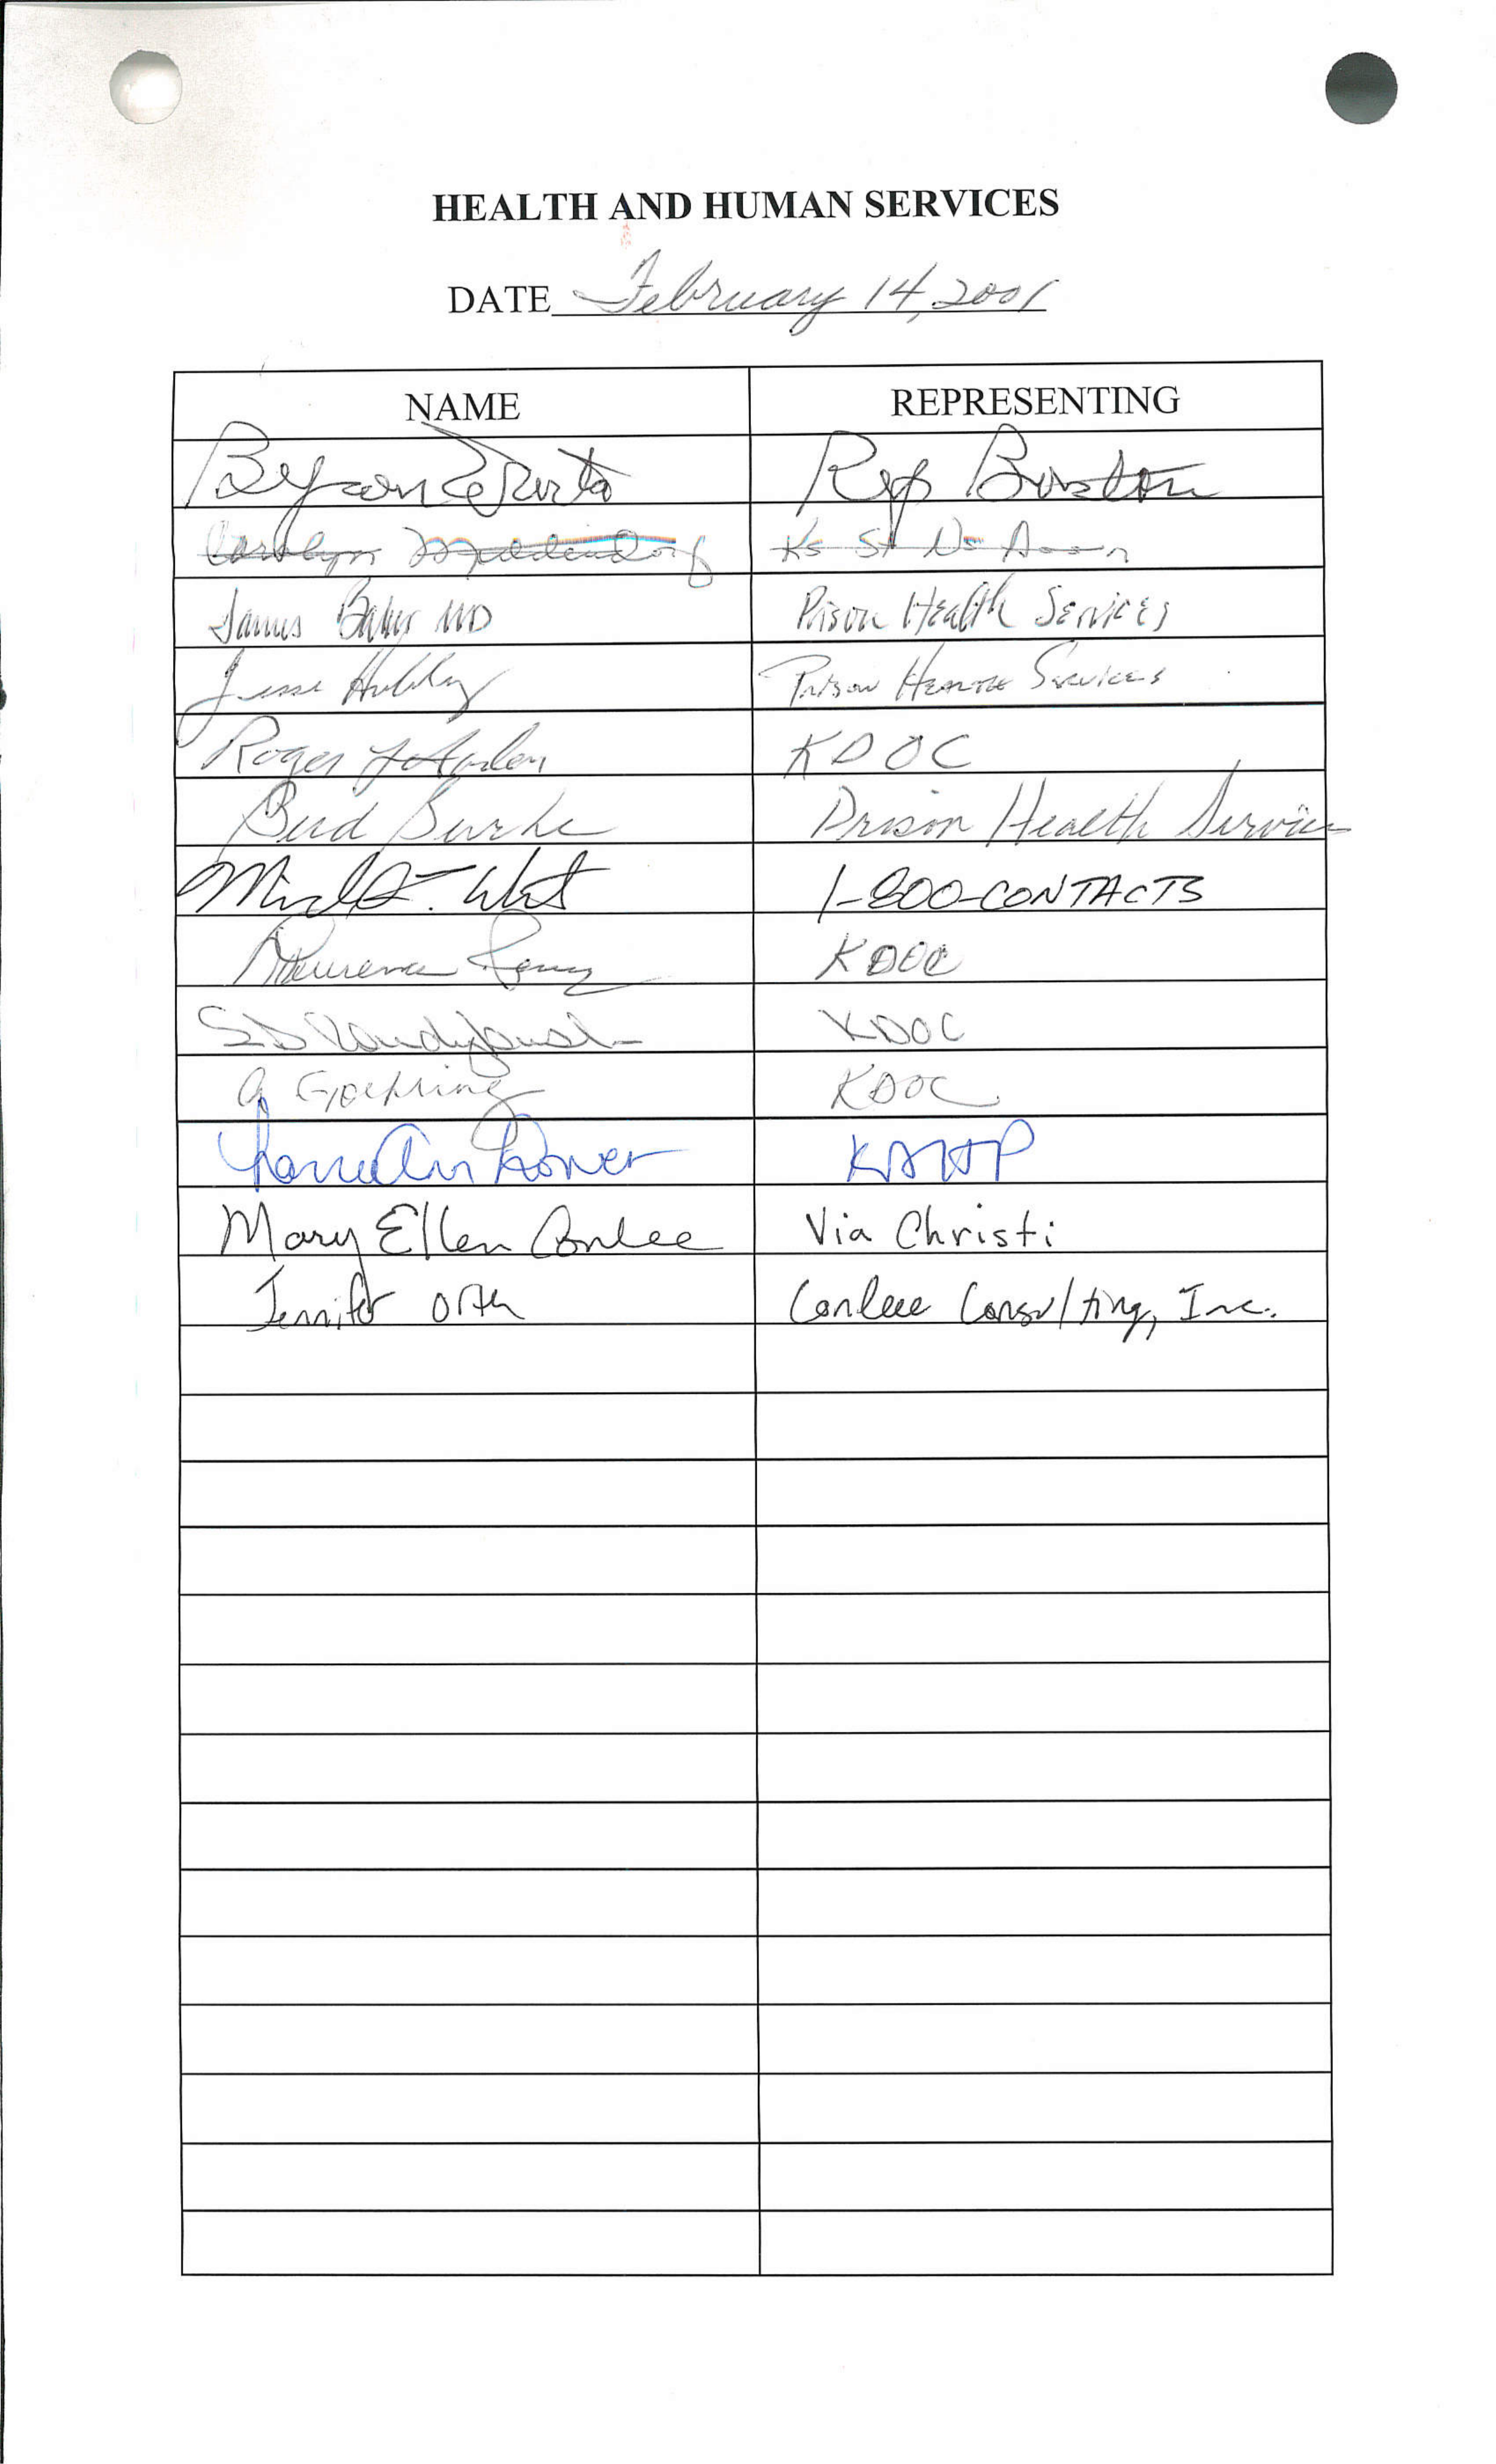 HEALTH AND HUMAN SERVICES
DATE February 14, 2001
NAME REPRESENTING
Byron Rep
Carolyn Middendorf Ks St Ns Assn
James Baker MD Prison Health Services
Jesse Prison Health Services
Roger KDOC
Burke Prison Health Services
1-800-CONTACTS
KDOC
KDOC
G Goehring KDOC
LarrieAnn Lower KAHP
Mary Ellen Conlee Via Christi
Jennifer Orth Conlee Consulting, Inc.